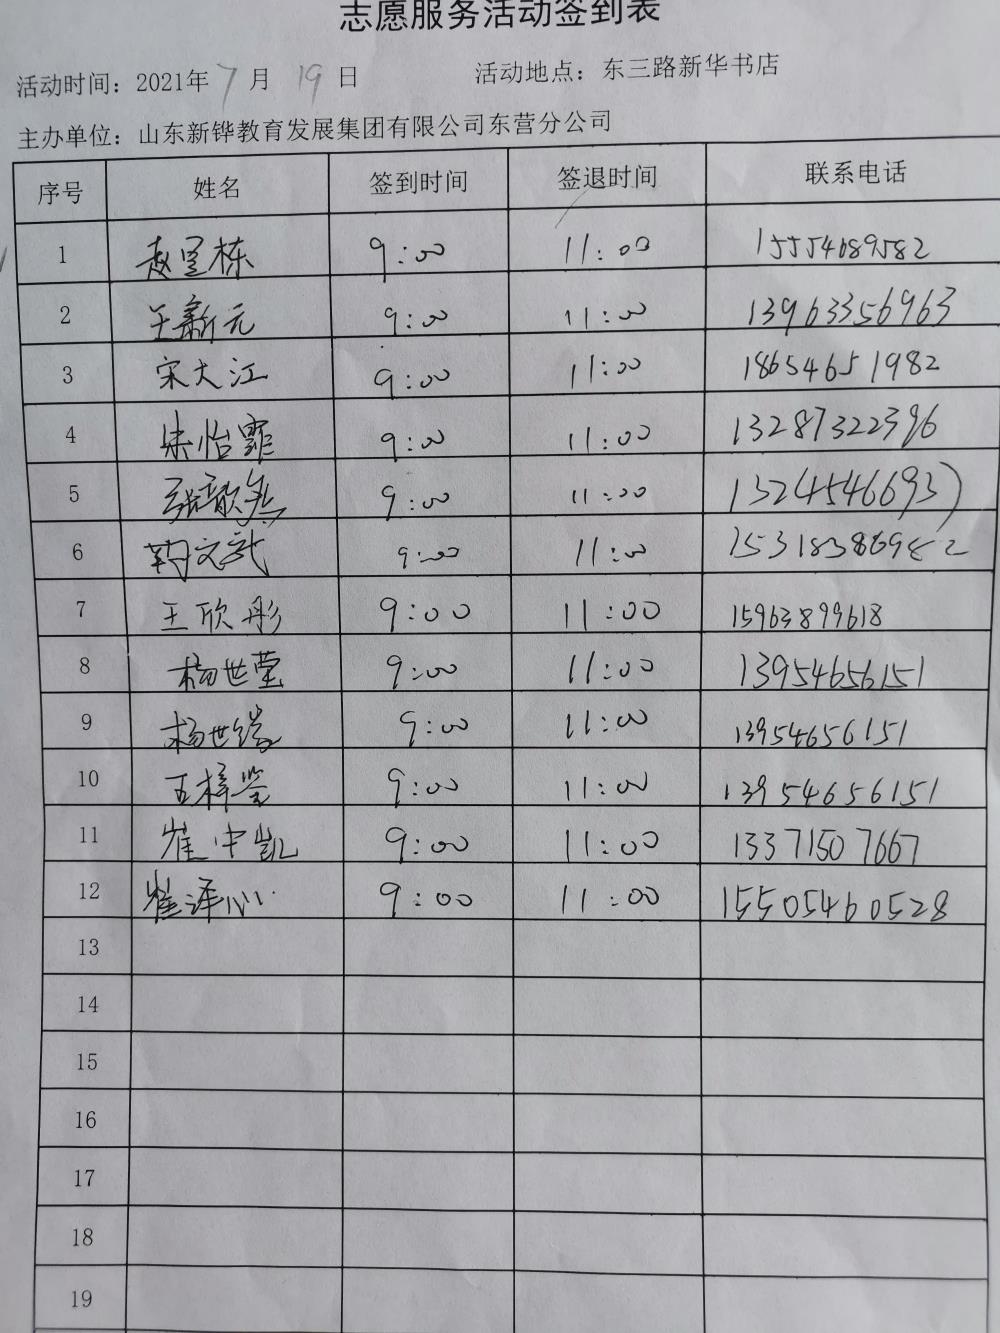 志愿服务活动签到表
活动时间：2021年 7 月 19 日 活动地点：东三路新华书店
主办单位：山东新铧教育发展集团有限公司东营分公司
序号 姓名 签到时间 签退时间 联系电话
1 赵 栋 9:00 11:00 15554689582
2 王新元 9:00 11:00 13963356963
3 宋大江 9:00 11:00 18654651982
4 怡霏 9:00 11:00 13287322396
5 张歆 9:00 11:00
6 文武 9:00 11:00
7 王欣彤 9:00 11:00 15963899618
8 杨世莹 9:00 11:00 13954656151
9 杨世缘 9:00 11:00 13954656151
10 王梓莹 9:00 11:00 13954656151
11 崔中凯 9:00 11:00 13371507667
12 崔泽心 9:00 11:00 15505460528
13
14
15
16
17
18
19